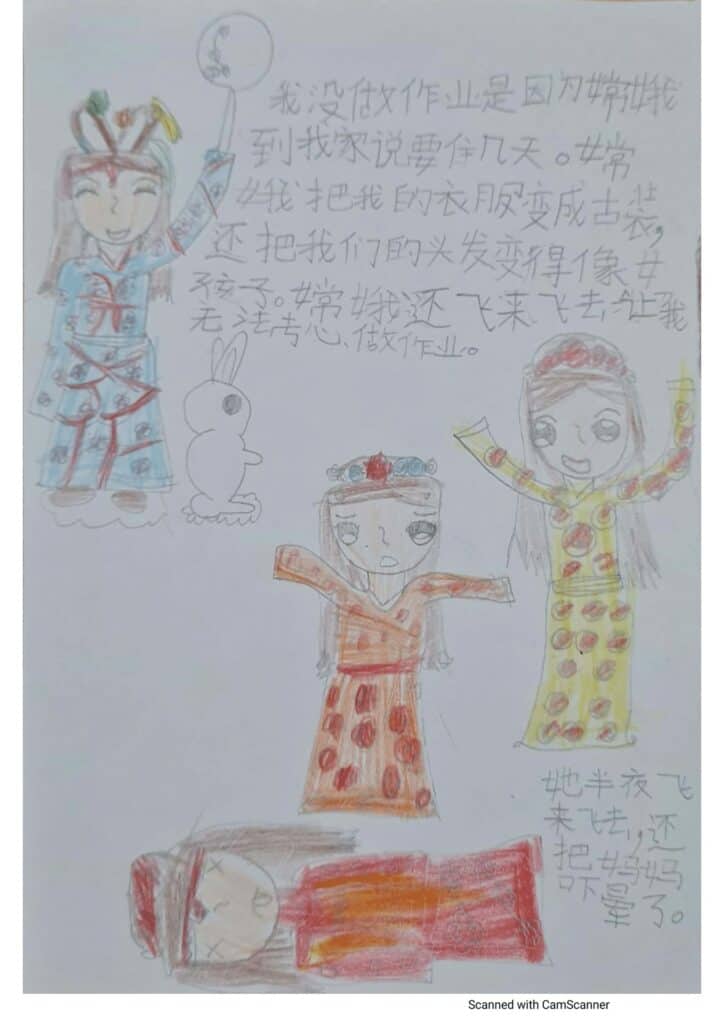 我没做作业是因为嫦娥
到我家说要住几天。嫦
娥把我的衣服变成古装,
还把我们的头发变得像女
孩子。嫦娥还飞来飞去,让我
无法专心、做作业。
她半夜飞
来飞去,还
把妈妈
吓晕了。
Scanned with CamScanner